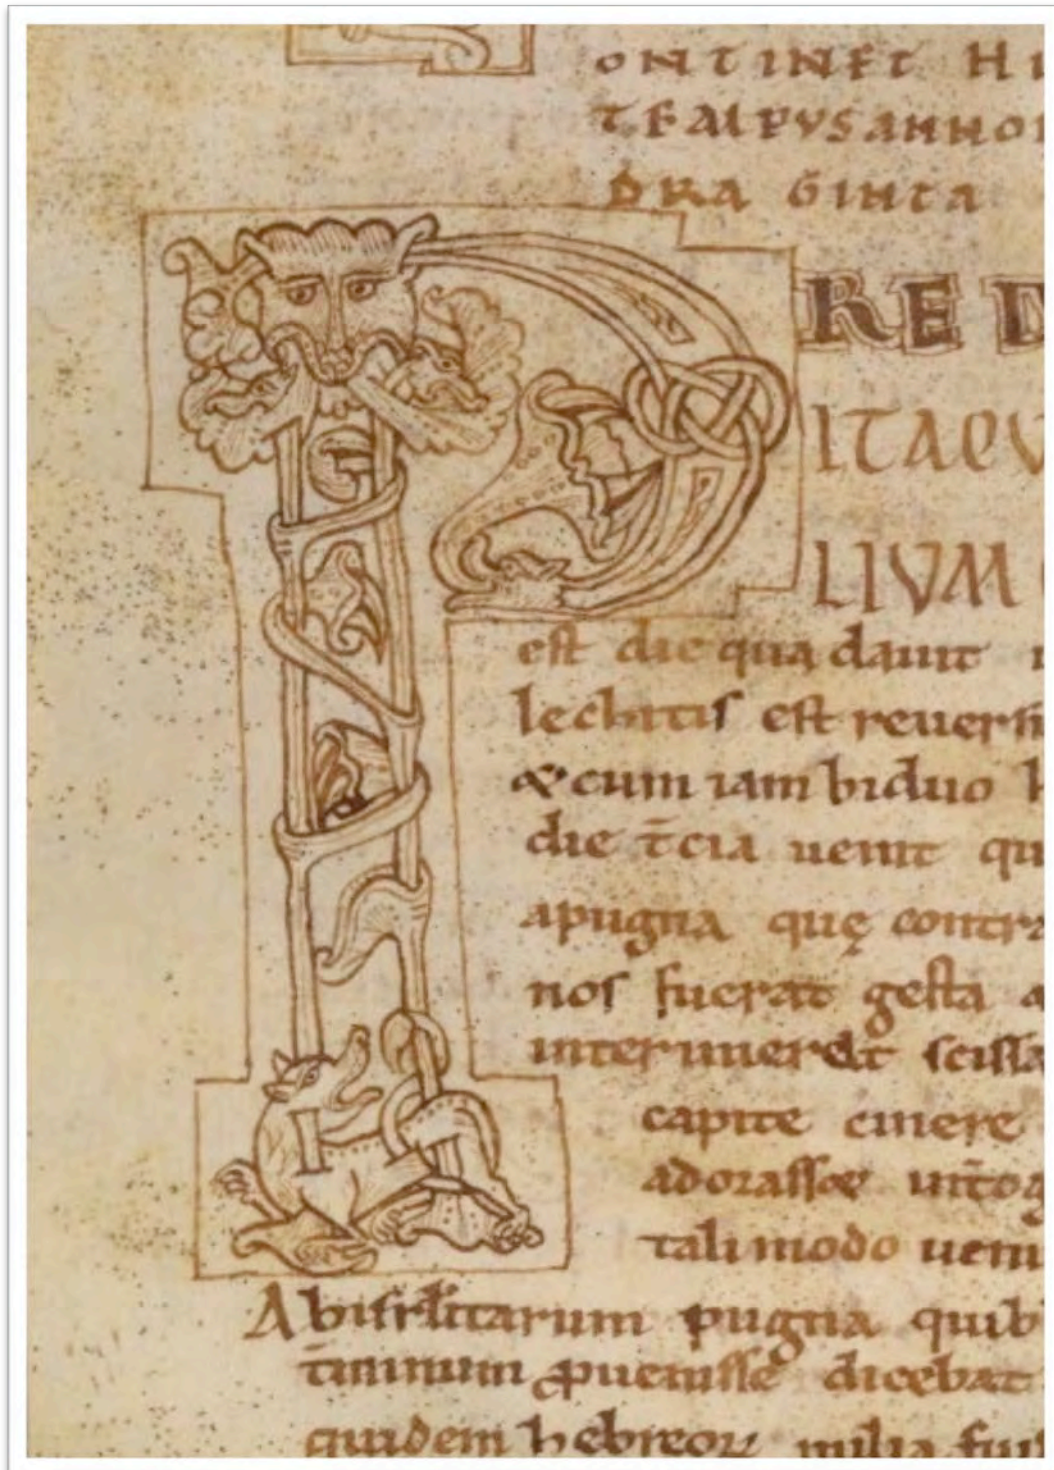 ONTINET HI
TEMPVS ANNO
DRAGINTA
P RE D
ITAQV
LIVM
est die qua dauit
lechitis est reuersu
& cum iam biduo
die t̄cia uenit qu
a pugna quę contra
nos fuerat gesta
interuuerat scissa
capite cinere
adorasset
tali modo ueni
Ab isrl̄itarum pugna quib
dicebat
quidem hebreoꝝ milia fui